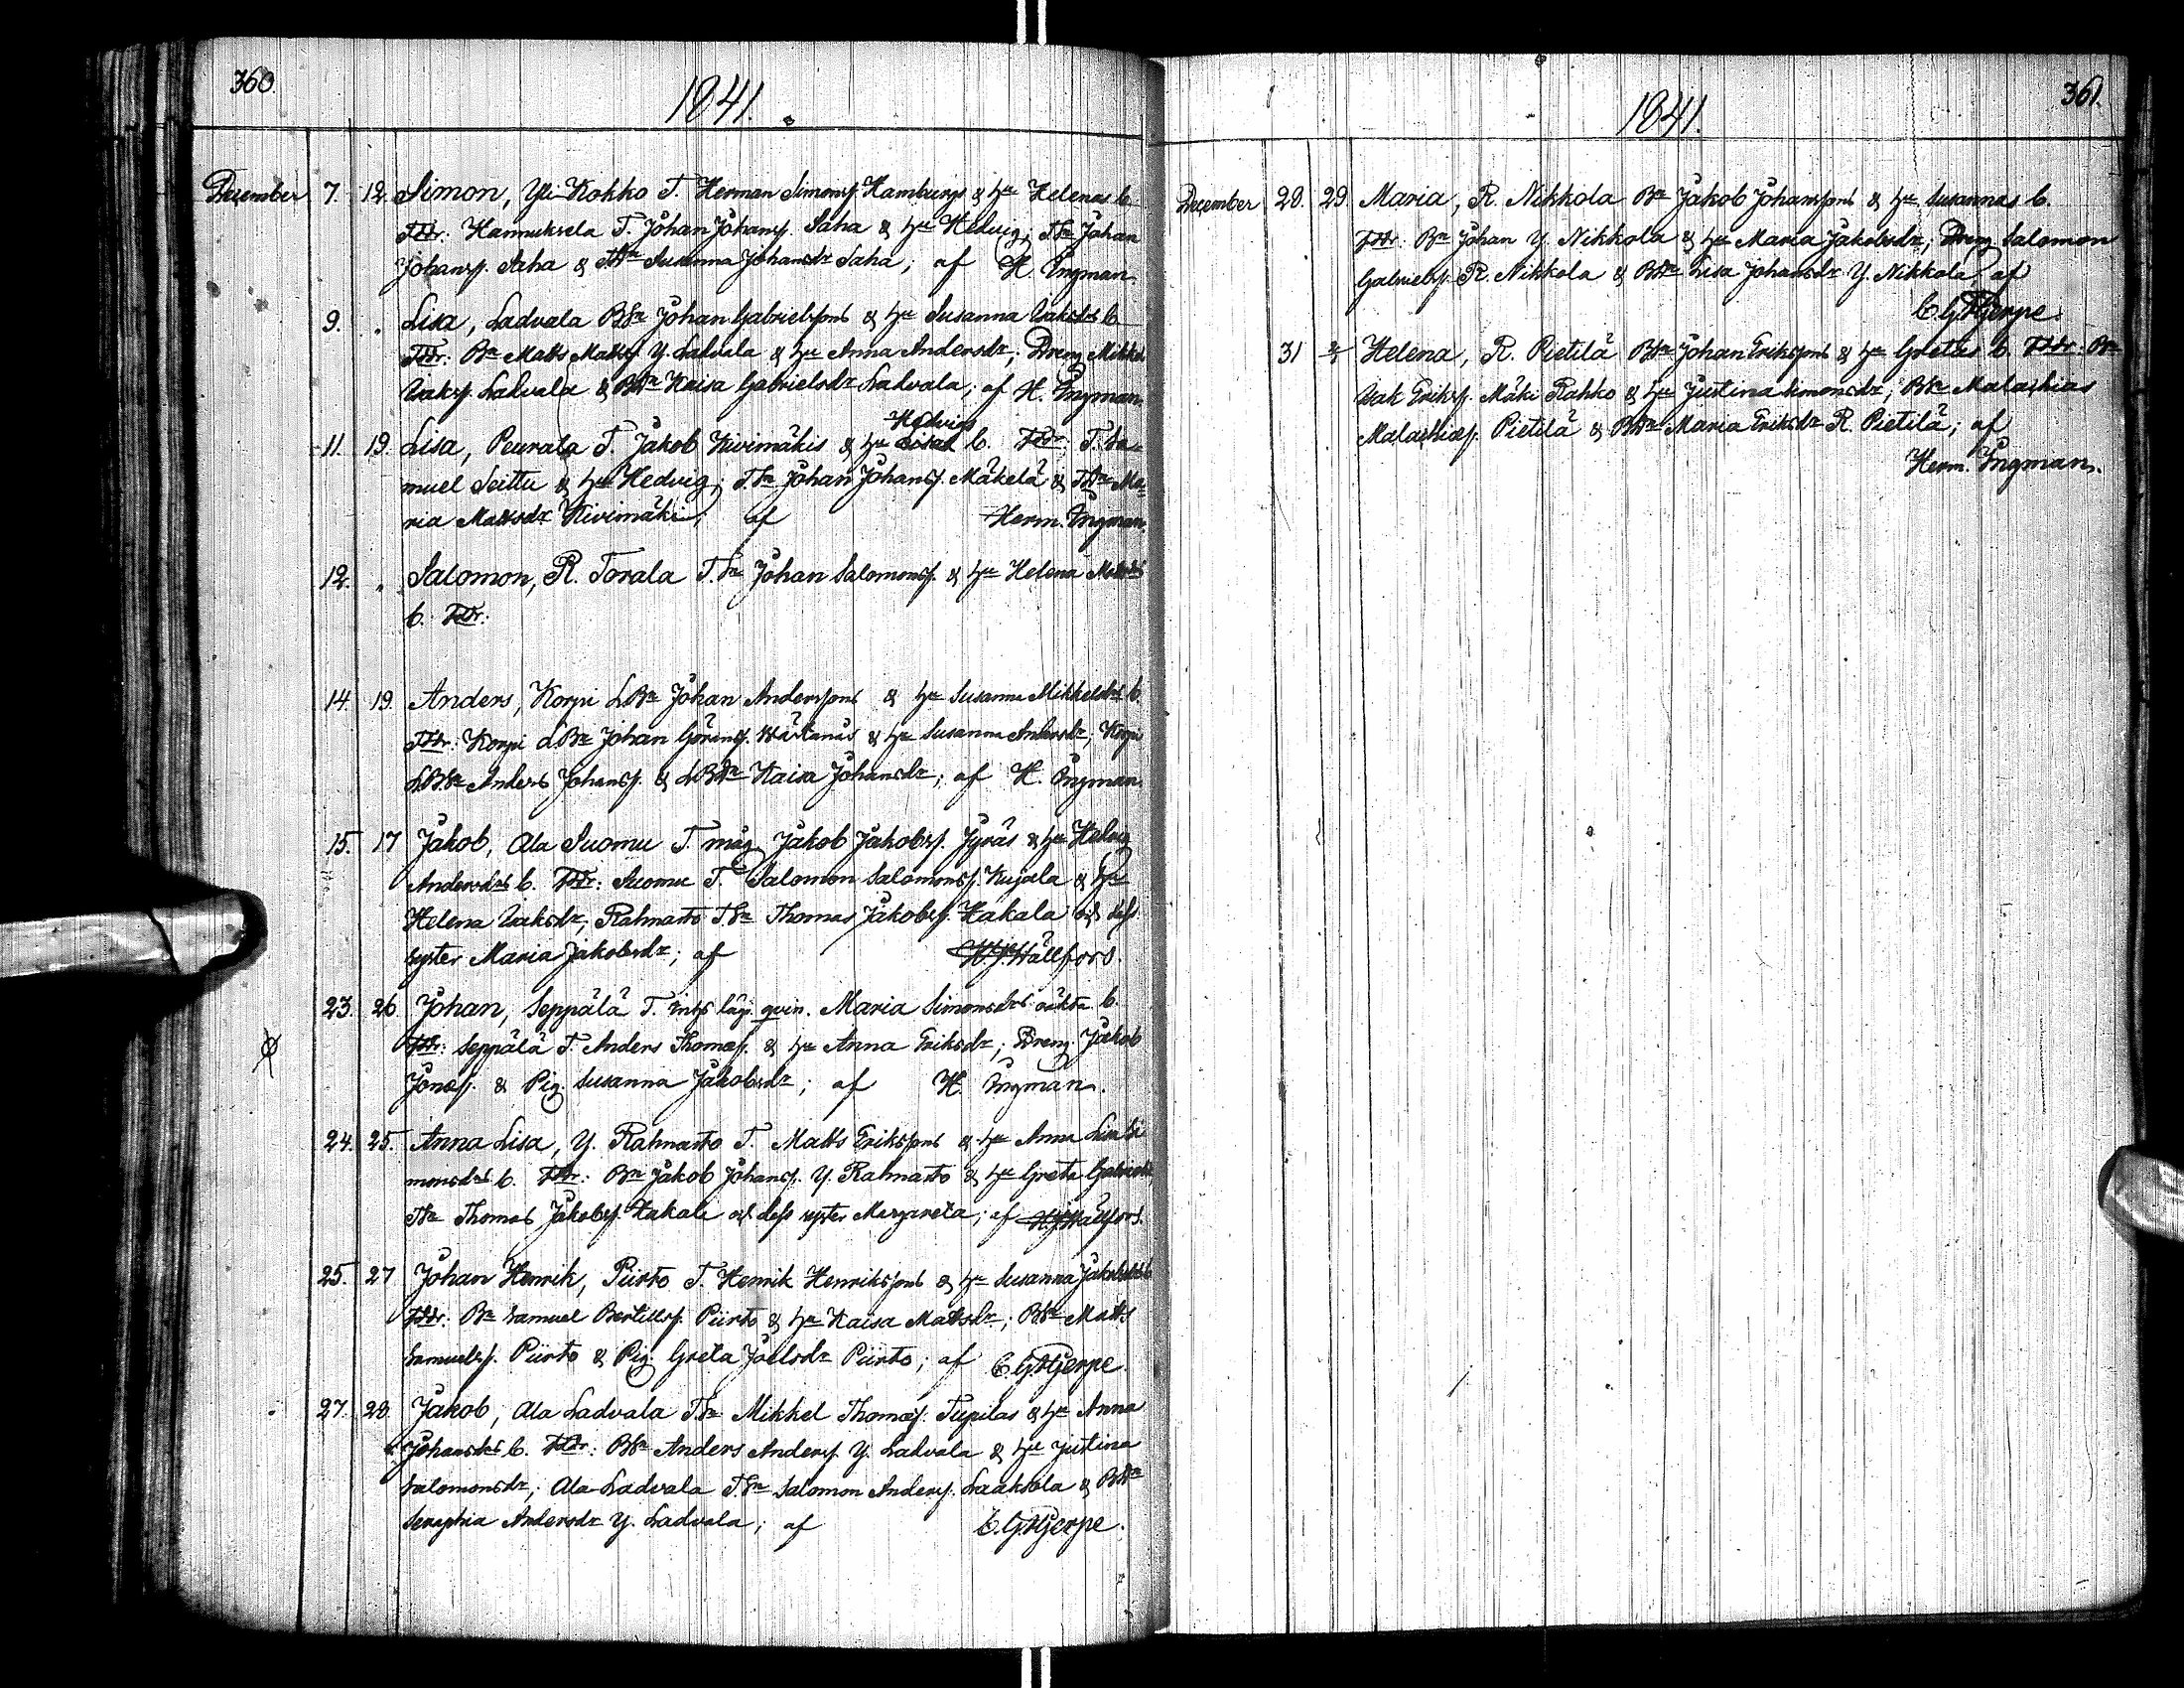 360.
1841.
December 7. 12. Simon, Yli Kokko T. Herman Simonsſ. Hamburgs & hu Helenas b.
Fddr: Hannuksela T. Johan Johansſ. Saha & hu Hedvig; TSn Johan
Johansſ. Saha & TDr Susanna Johansdr Saha; af H. Ingman.
9. " Lisa, Ladvala BSn Johan Gabrielssons & hu Susanna Isaksdrs b.
Fddr: Bn Matts Mattsſ. Y. Ladvala & hu Anna Andersdr; Dreng Mikkel
Isaksſ. Ladvala & BDr Kaisa Gabrielsdr Ladvala; af H. Ingman.
Hedvigs
11. 19. Lisa, Peurala T. Jakob Kivimäkis & hu Lisas b. Fddr: T. Sa-
muel Seittu & hu Hedvig; T.Sn Johan Johansſ. Mäkelä & TDr Ma-
ria Mattsdr Kivimäki; af Herm. Ingman.
12. " Salomon, R. Torala T.Sn Johan Salomonsſ. & hu Helena Mattsdrs
b. Fddr:
14. 19. Anders, Korpi LBn Johan Anderssons & hu Susanna Mikkelsdrs b.
Fddr: Korpi LBn Johan Göransſ. & hu Susanna Andersdr; Korpi
LBSn Anders Johansſ. & LBDr Kaisa Johansdr; af H. Ingman.
15. 17 Jakob, Ala Suomu T. måg Jakob Jakobsſ. Jyräs & hu Hedvig
Andersdrs b. Fddr: Suomu T. Salomon Salomonsſ. Kujala & hu
Helena Isaksdr; Rahnasto TSn Thomas Jakobsſ. Hakala och dess
syster Maria Jakobsdr; af H.J. Wällfors.
23. 26 Johan, Seppälä T. inhs läg. qvin. Maria Simonsdrs oäkta b.
Fddr: Seppälä T. Anders Thomasſ. & hu Anna Eriksdr; Dreng Jakob
Jonasſ. & Pig. Susanna Jakobsdr; af H. Ingman.
24. 25. Anna Lisa, Y. Rahnasto T. Matts Erikssons & hu Anna Lisa Si-
monsdrs b. Fddr: Bn Jakob Johansſ. Y. Rahnasto & hu Greta Gabrielsdr;
TSn Thomas Jakobsſ. Hakala och dess syster Margareta; af H.J. Wällfors.
25. 27 Johan Henrik, Piirto T. Henrik Henrikssons & hu Susanna Jakobsdrs b.
Fddr: Bn Samuel Bertillsſ. Piirto & hu Kaisa Mattsdr; BSn Matts
Samuelsſ. Piirto & Pig. Greta Joelsdr Piirto; af C.G. Hjerpe.
27. 28. Jakob, Ala Ladvala TSn Mikkel Thomasſ. Tupilas & hu Anna
Johansdrs b. Fddr: BSn Anders Andersſ. Y. Ladvala & hu Justina
Salomonsdr; Ala Ladvala T.Sn Salomon Andersſ. Laaksola & BDr
Seraphia Andersdr Y. Ladvala; af C.G. Hjerpe.
361.
1841.
December 28. 29. Maria, R. Nikkola Bn Jakob Johanssons & hu Susannas b.
Fddr: Bn Johan Y. Nikkola & hu Maria Jakobsdr; Dreng Salomon
Gabrielsſ. R. Nikkola & BDr Lisa Johansdr Y. Nikkola; af
C.G. Hjerpe.
31 Helena, R. Pietilä BSn Johan Erikssons & hu Gretas b. Fddr: Bn
Isak Eriksſ. Mäki Rahko & hu Justina Simonsdr; BSn Malachias
Malachiasſ. Pietilä & BDr Maria Eriksdr R. Pietilä; af
Herm. Ingman.